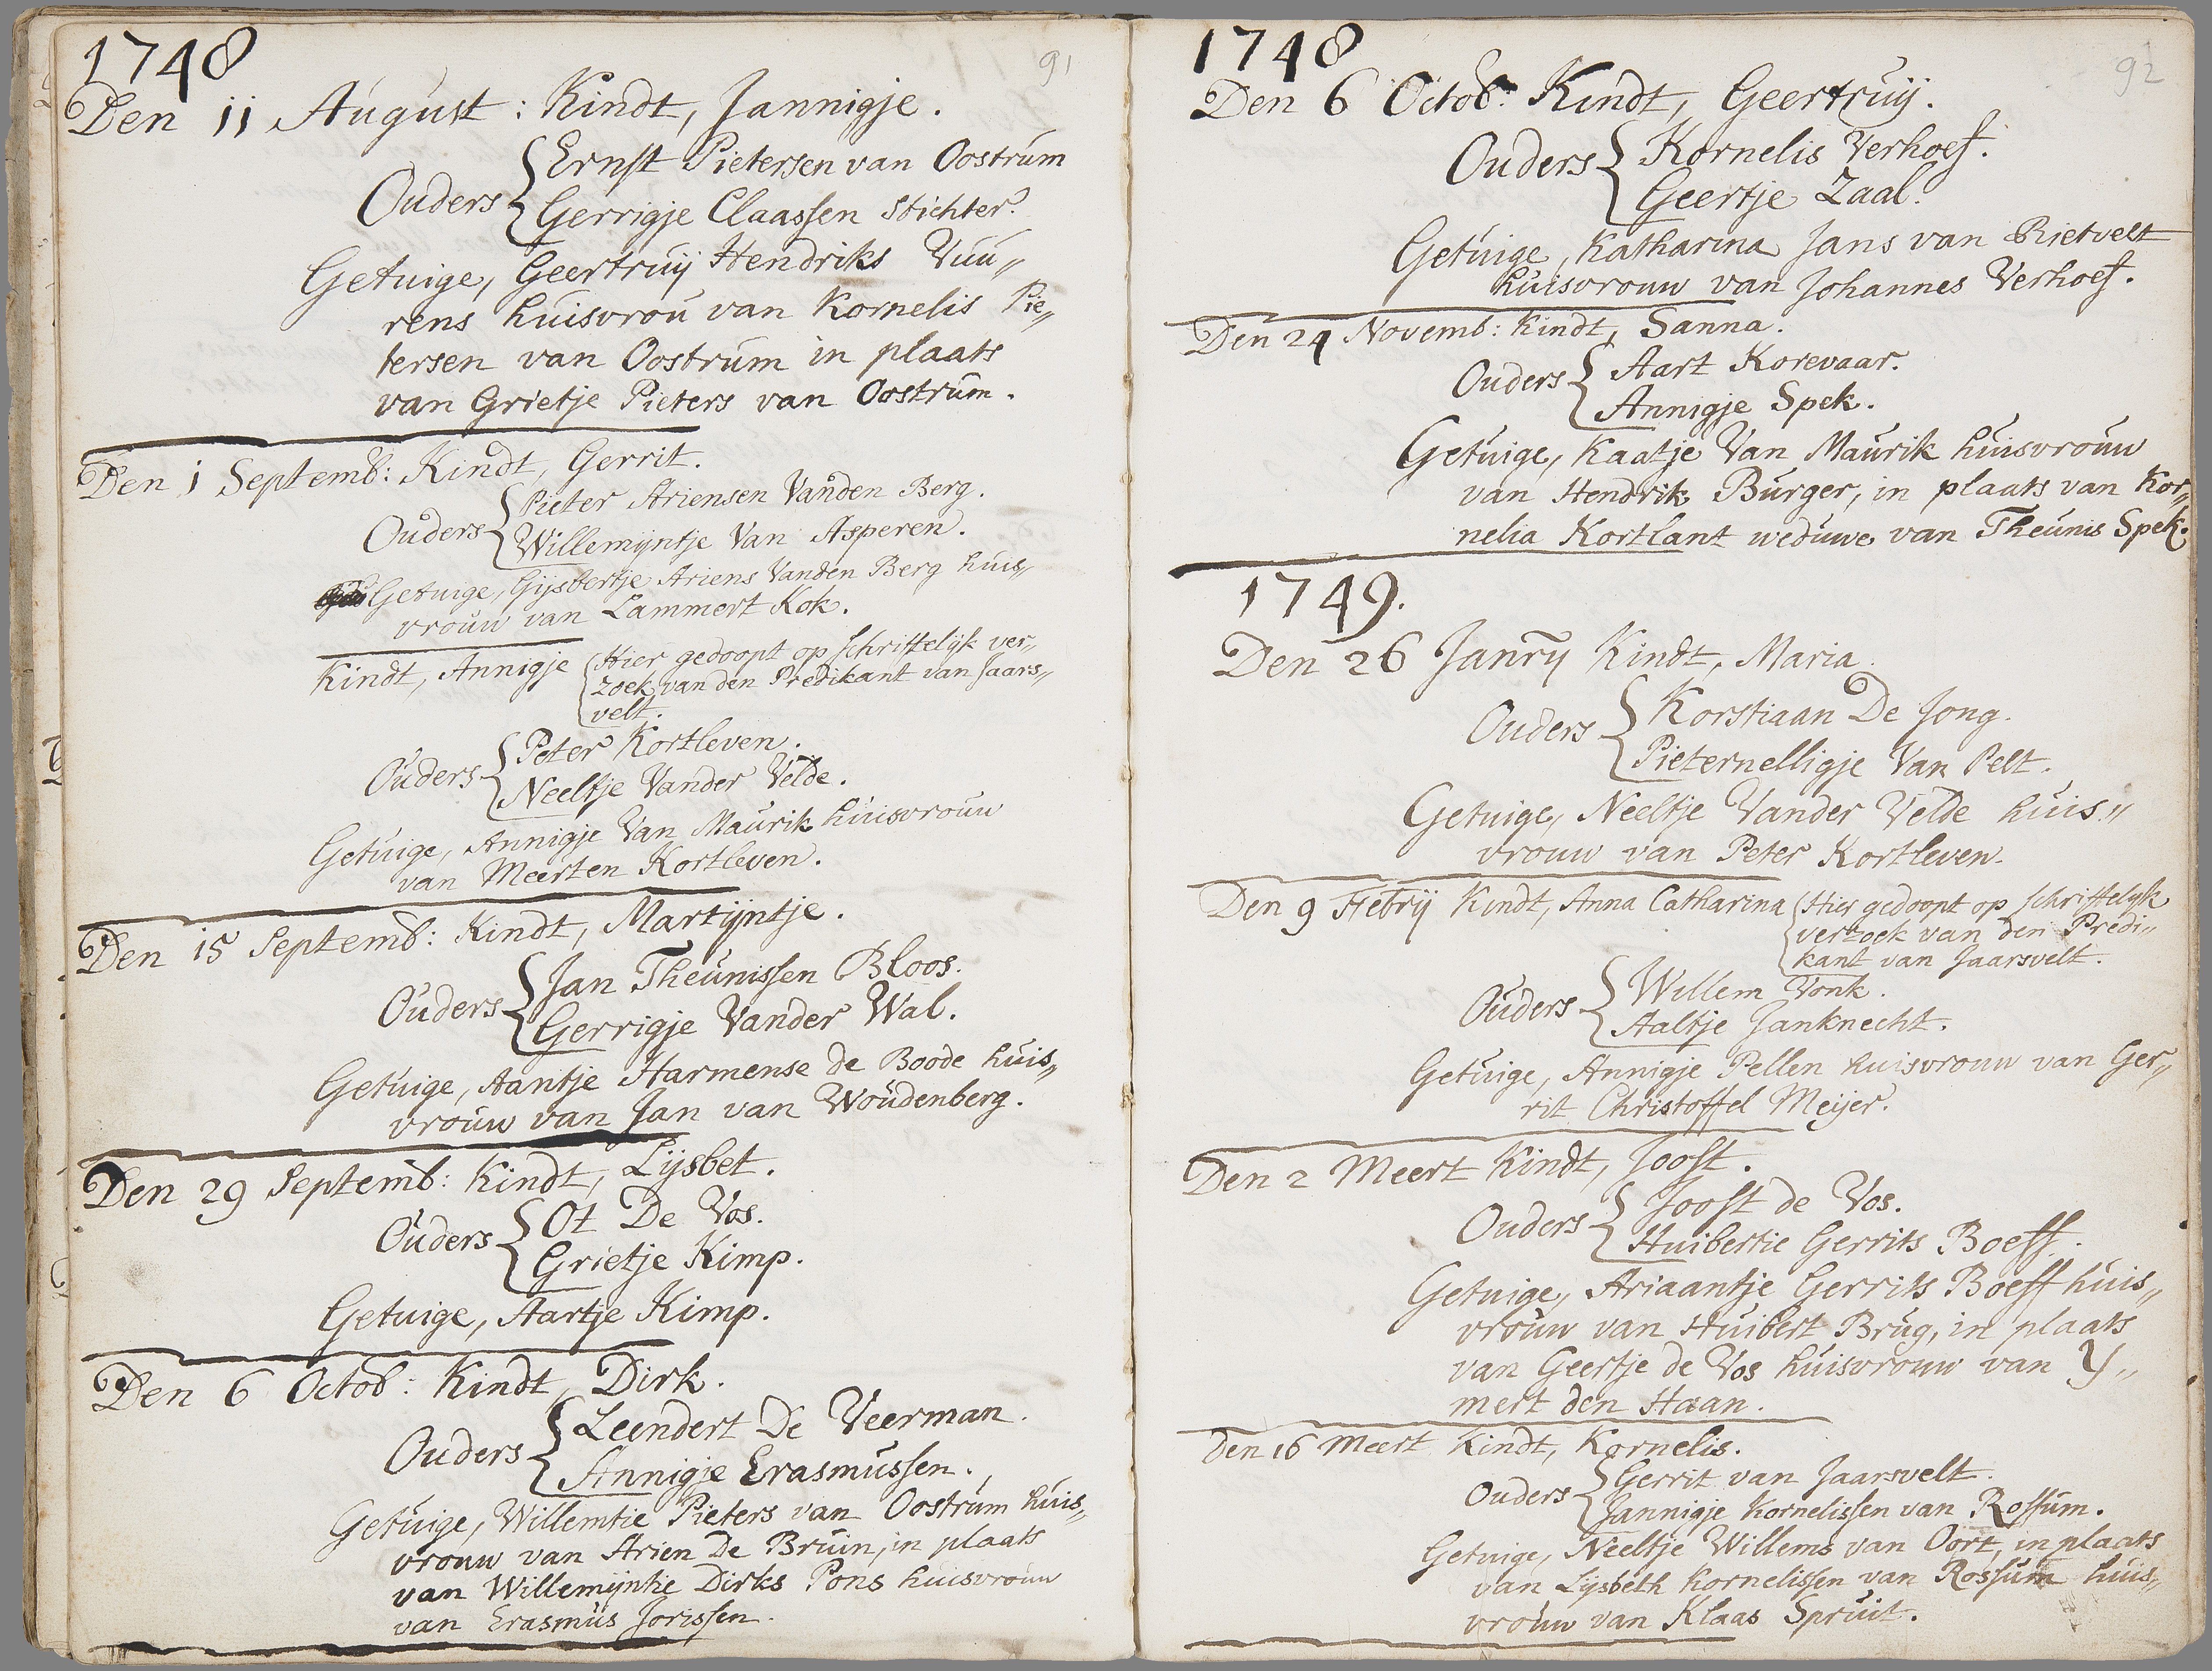 1748
91
Den 11 August: Kindt, Jannigje.
Ouders { Ernst Pietersen van Oostrum
Gerrigje Claassen Stichter.
Getuige, Geertruij Hendriks Vuu„
rens huisvrou van Kornelis Pie„
tersen van Oostrum in plaats
van Grietje Pieters van Oostrum.
Den 1 Septemb: Kindt, Gerrit.
Ouders { Pieter Ariensen Vanden Berg.
Willemijntje Van Asperen.
Getuige, Gijsbertje Ariens Vanden Berg huis„
vrouw van Lammert Kok.
Kindt, Annigje { Hier gedoopt op schriftelijk ver„
zoek van den Predikant van Jaars„
velt.
Ouders { Peter Kortleven.
Neeltje Vander Velde.
Getuige, Annigje Van Maurik huisvrouw
van Meerten Kortleven.
Den 15 Septemb: Kindt, Martijntje.
Ouders { Jan Theunissen Bloos.
Gerrigje Vander Wal.
Getuige, Aantje Harmense de Boode huis„
vrouw van Jan van Woudenberg.
Den 29 Septemb: Kindt, Lijsbet.
Ouders { Ot De Vos.
Grietje Kimp.
Getuige, Aartje Kimp.
Den 6 Octob: Kindt, Dirk.
Ouders { Leendert De Veerman.
Annigje Erasmussen.
Getuige, Willemtie Pieters van Oostrum huis„
vrouw van Arien De Bruin, in plaats
van Willemijntie Dirks Pons huisvrouw
van Erasmus Jorissen.
1748
92
Den 6 Octob: Kindt, Geertruij.
Ouders { Kornelis Verhoef.
Geertje Zaal.
Getuige, Katharina Jans van Rietvelt
huisvrouw van Johannes Verhoef.
Den 24 Novemb: Kindt, Sanna.
Ouders { Aart Korevaar.
Annigje Spek.
Getuige, Kaatje Van Maurik huisvrouw
van Hendrik Burger, in plaats van Kor„
nelia Kortlant weduwe van Theunis Spek.
1749.
Den 26 Janrÿ Kindt, Maria.
Ouders { Korstiaan De Jong.
Pieternelligje Van Pelt.
Getuige, Neeltje Vander Velde huis„
vrouw van Peter Kortleven.
Den 9 Febrij Kindt, Anna Catharina { Hier gedoopt op schriftelyk
verzoek van den Predi„
kant van Jaarsvelt.
Ouders { Willem Vonk.
Aaltje Janknecht.
Getuige, Annigje Pellen huisvrouw van Ger„
rit Christoffel Meijer.
Den 2 Meert Kindt, Joost.
Ouders { Joost de Vos.
Huibertie Gerrits Boeff.
Getuige, Ariaantje Gerrits Boeff huis„
vrouw van Huibert Brug, in plaats
van Geertje de Vos huisvrouw van Y„
mert den Haan.
Den 16 Meert Kindt, Kornelis.
Ouders { Gerrit van Jaarsvelt.
Jannigje Kornelissen van Rossum.
Getuige, Neeltje Willems van Oort, in plaats
van Lijsbeth Kornelissen van Rossum huis„
vrouw van Klaas Spruit.